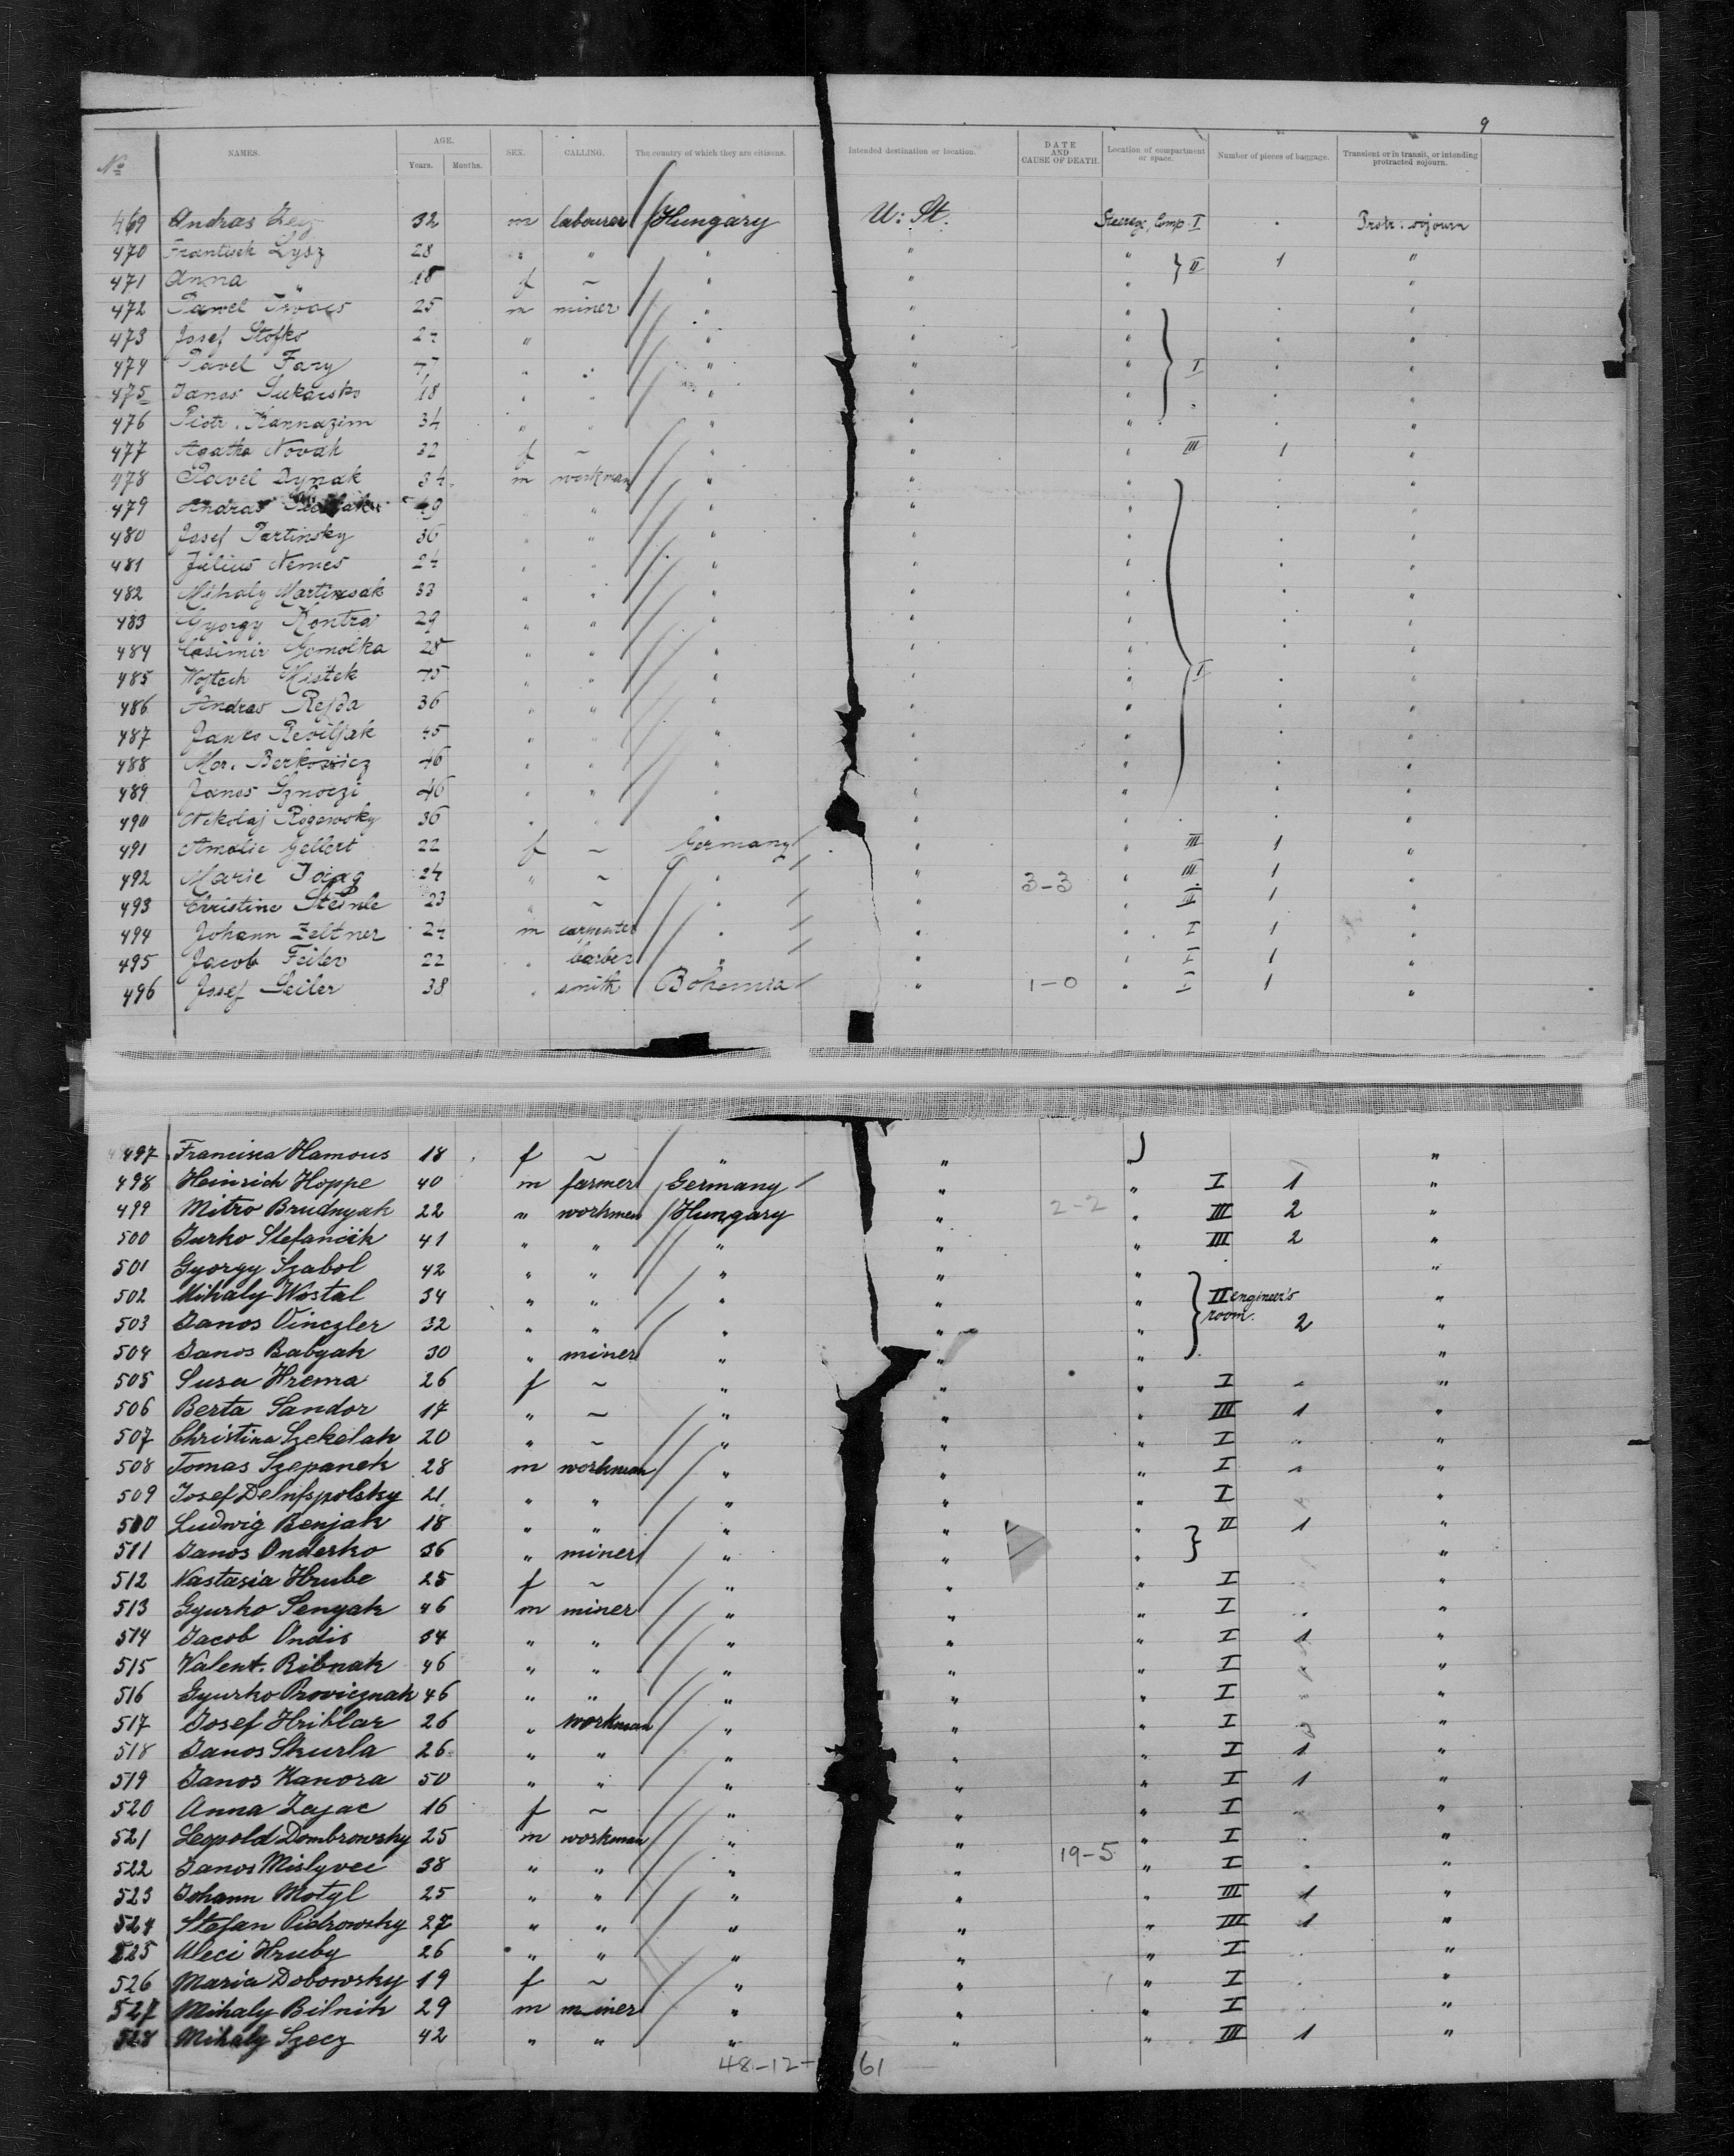 9
No NAMES. AGE. Years. Months. SEX. CALLING. The country of which they are citizens. Intended destination or location. DATE AND CAUSE OF DEATH. Location of compartment or space. Number of pieces of baggage. Transient or in transit, or intending protracted sojourn.
469 Andras 32 m labourer Hungary U: St. Steerage, Comp I " Protr: sojourn
470 Frantisek Lysz 28 " " " " " } II 1 "
471 Anna " 18 f ~ " " " "
472 Pawel 25 m miner " " " " "
473 Josef Stofko " " " " " "
474 Pavel Fary " " " " " I " "
475 Janos Sukacsko 18 " " " " " " "
476 Piotr Kannazim 34 " " " " " " "
477 Agatha Novak 32 f ~ " " " III 1 "
478 Pavel Dynak 34 m workman " " " " "
479 Andras " " " " " " "
480 Josef Partinsky 36 " " " " " " "
481 Julius Nemes 24 " " " " " " "
482 Mihaly Martinesak 33 " " " " " " "
483 Gyorgy Kontra 29 " " " " " " "
484 Casimir Gomolka 28 " " " " " " "
485 Wojtech Mistek " " " " " I " "
486 Andras Rejda 36 " " " " " " "
487 Janko Reviljak 45 " " " " " " "
488 Mor. Berkowicz 46 " " " " " " "
489 Janos Sznoczi 46 " " " " " " "
490 Nikolaj Rogewsky 36 " " " " " " "
491 Amalie Gellert 22 f ~ Germany " " III 1 "
492 Marie 24 " ~ " " 3-3 " III 1 "
493 Christine Steinle 23 " ~ " " " II 1 "
494 Johann Zeltner 24 m carpenter " " " I 1 "
495 Jacob Feiler 22 " barber " " " I 1 "
496 Josef Seiler 38 " smith Bohemia " 1-0 " I 1 "
497 Francisca Hamous 18 f ~ " " " "
498 Heinrich Hoppe 40 m farmer Germany " " I 1 "
499 Mitro Brudnyak 22 " workmen Hungary " 2-2 " III 2 "
500 Jurko Stefancik 41 " " " " " III 2 "
501 Gyorgy Szabol 42 " " " " " "
502 Mihaly Wostal 34 " " " " " } II engineer's "
503 Janos Vinczler 32 " " " " " room. 2 "
504 Janos Babyak 30 " miner " " " "
505 Susa Hrema 26 f ~ " " " I " "
506 Berta Sandor 17 " ~ " " " III 1 "
507 Christina Szekelak 20 " ~ " " " I " "
508 Tomas Szepanek 28 m workman " " " I " "
509 Josef 21 " " " " " I " "
510 Ludwig Benjak 18 " " " " " } II 1 "
511 Janos Onderko 36 " miner " " " "
512 Nastasia Hrube 25 f ~ " " " I " "
513 Gyurko Senyak 46 m miner " " " I " "
514 Jacob Ondis 34 " " " " " I 1 "
515 Valent. Ribnak 46 " " " " " I " "
516 Gyurko Provicznak 46 " " " " " I " "
517 Josef Hriblar 26 " workman " " " I " "
518 Janos Skurla 26 " " " " " I 1 "
519 Janos Kanora 50 " " " " " I 1 "
520 Anna Zajac 16 f ~ " " " I " "
521 Leopold Dombrowsky 25 m workman " " " I " "
522 Janos Mislyvec 38 " " " " 19-5 " I " "
523 Johann Motyl 25 " " " " " III 1 "
524 Stefan Piedrowsky 27 " " " " " III 1 "
525 Aleci Hruby 26 " " " " " I " "
526 Maria Dobowsky 19 f ~ " " " I " "
527 Mihaly Bilnik 29 m miner " " " I " "
528 Mihaly Szecz 42 " " " " " III 1 "
48-12-61